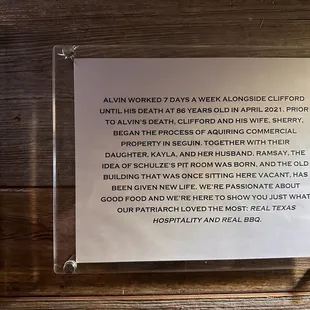 ALVIN WORKED 7 DAYS A WEEK ALONGSIDE CLIFFORD
UNTIL HIS DEATH AT 86 YEARS OLD IN APRIL 2021. PRIOR
TO ALVIN'S DEATH, CLIFFORD AND HIS WIFE, SHERRY,
BEGAN THE PROCESS OF AQUIRING COMMERCIAL
PROPERTY IN SEGUIN. TOGETHER WITH THEIR
DAUGHTER, KAYLA, AND HER HUSBAND, RAMSAY, THE
IDEA OF SCHULZE'S PIT ROOM WAS BORN, AND THE OLD
BUILDING THAT WAS ONCE SITTING HERE VACANT, HAS
BEEN GIVEN NEW LIFE. WE'RE PASSIONATE ABOUT
GOOD FOOD AND WE'RE HERE TO SHOW YOU JUST WHAT
OUR PATRIARCH LOVED THE MOST: REAL TEXAS
HOSPITALITY AND REAL BBQ.